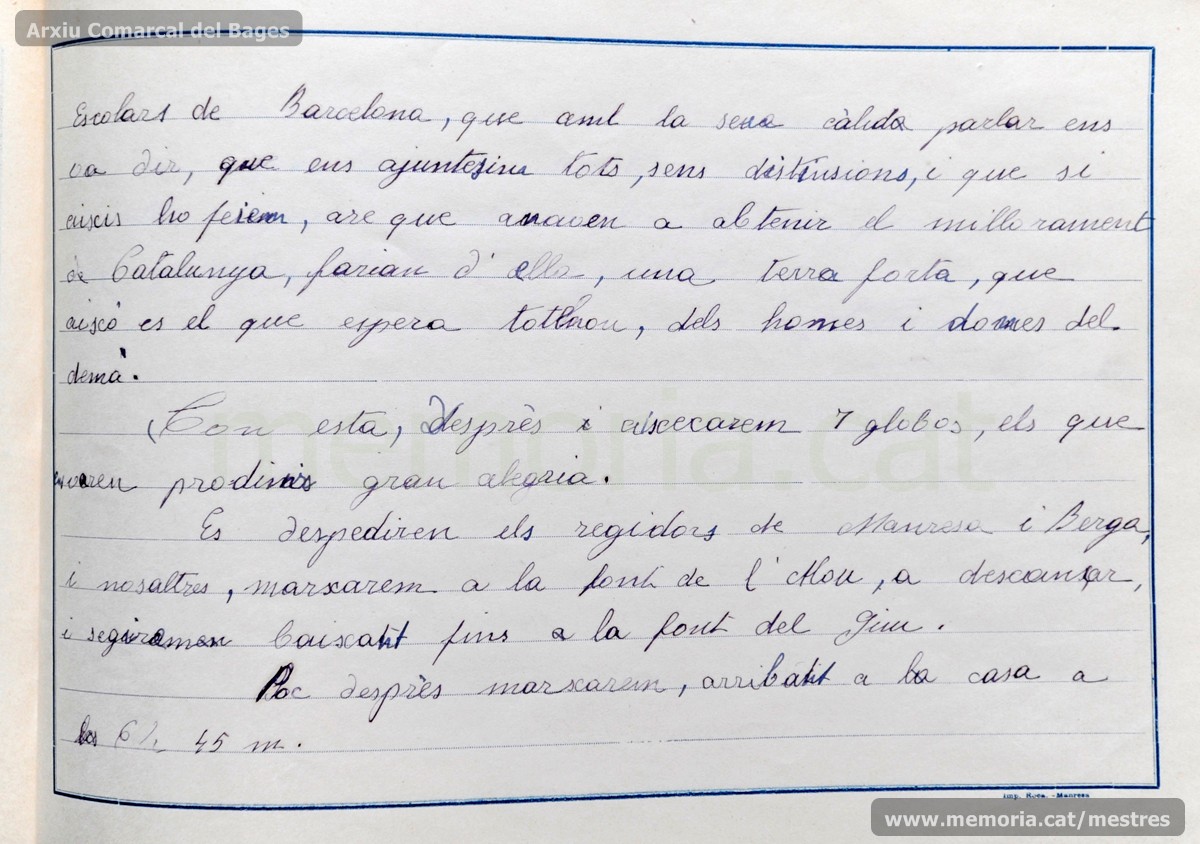 Arxiu Comarcal del Bages
Escolars de Barcelona, que amb la seua càlida parlar ens
va dir, que ens ajuntesim tots, sens distinsions, i que si
aixis ho feiem, are que anaven a abtenir el millorament
de Catalunya, farian d'ella, una terra forta, que
aixó es el que espera tothom, dels homes i dones del
demà.
Con esta, desprès i aixecarem 7 globos, els que
gran alegria.
Es despediren els regidors de Manresa i Berga,
i nosaltres, marxarem a la font de l'Mou, a descansar,
i baixant fins a la font del Giu.
Poc desprès marxarem, arribant a la casa a
les 6 h 45 m.
memoria.cat
Imp. Roca. -Manresa
www.memoria.cat/mestres